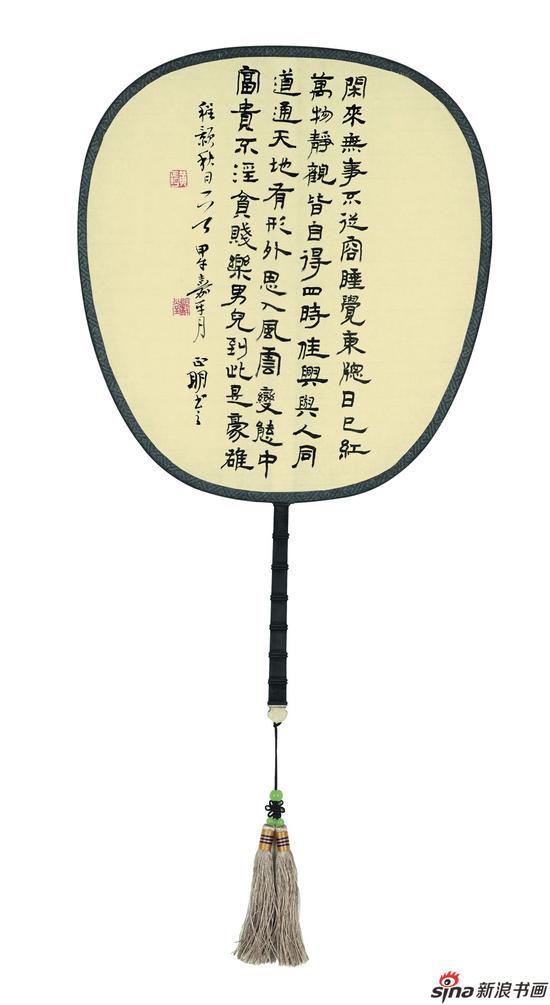 閑來無事不從容睡覺東牕日已紅
萬物靜觀皆自得四時佳興與人同
道通天地有形外思入風雲變態中
富貴不淫貧賤樂男兒到此是豪雄
程顥秋日 甲午嘉平月 正明書之
sina新浪书画